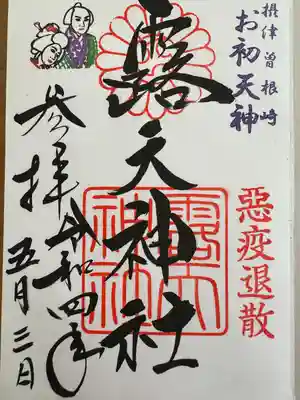 摂津曽根崎
お初天神
露天神社
悪疫退散
参拝令和四年
五月三日
露天神社